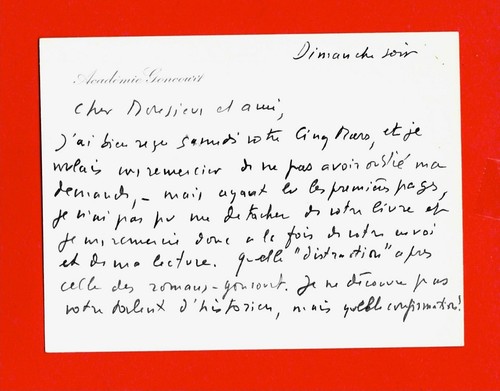 Dimanche soir
Académie Goncourt
Cher Monsieur et ami,
J'ai bien reçu samedi votre Cinq Mars, et je
voulais vous remercier de ne pas avoir oublié ma
demande, – mais ayant lu les premières pages,
je n'ai pas pu me détacher de votre livre et
je vous remercie donc à la fois de votre envoi
et de ma lecture. Quelle "distraction" après
celle des romans-goncourt. Je ne découvre pas
votre talent d'historien, mais quelle confirmation!